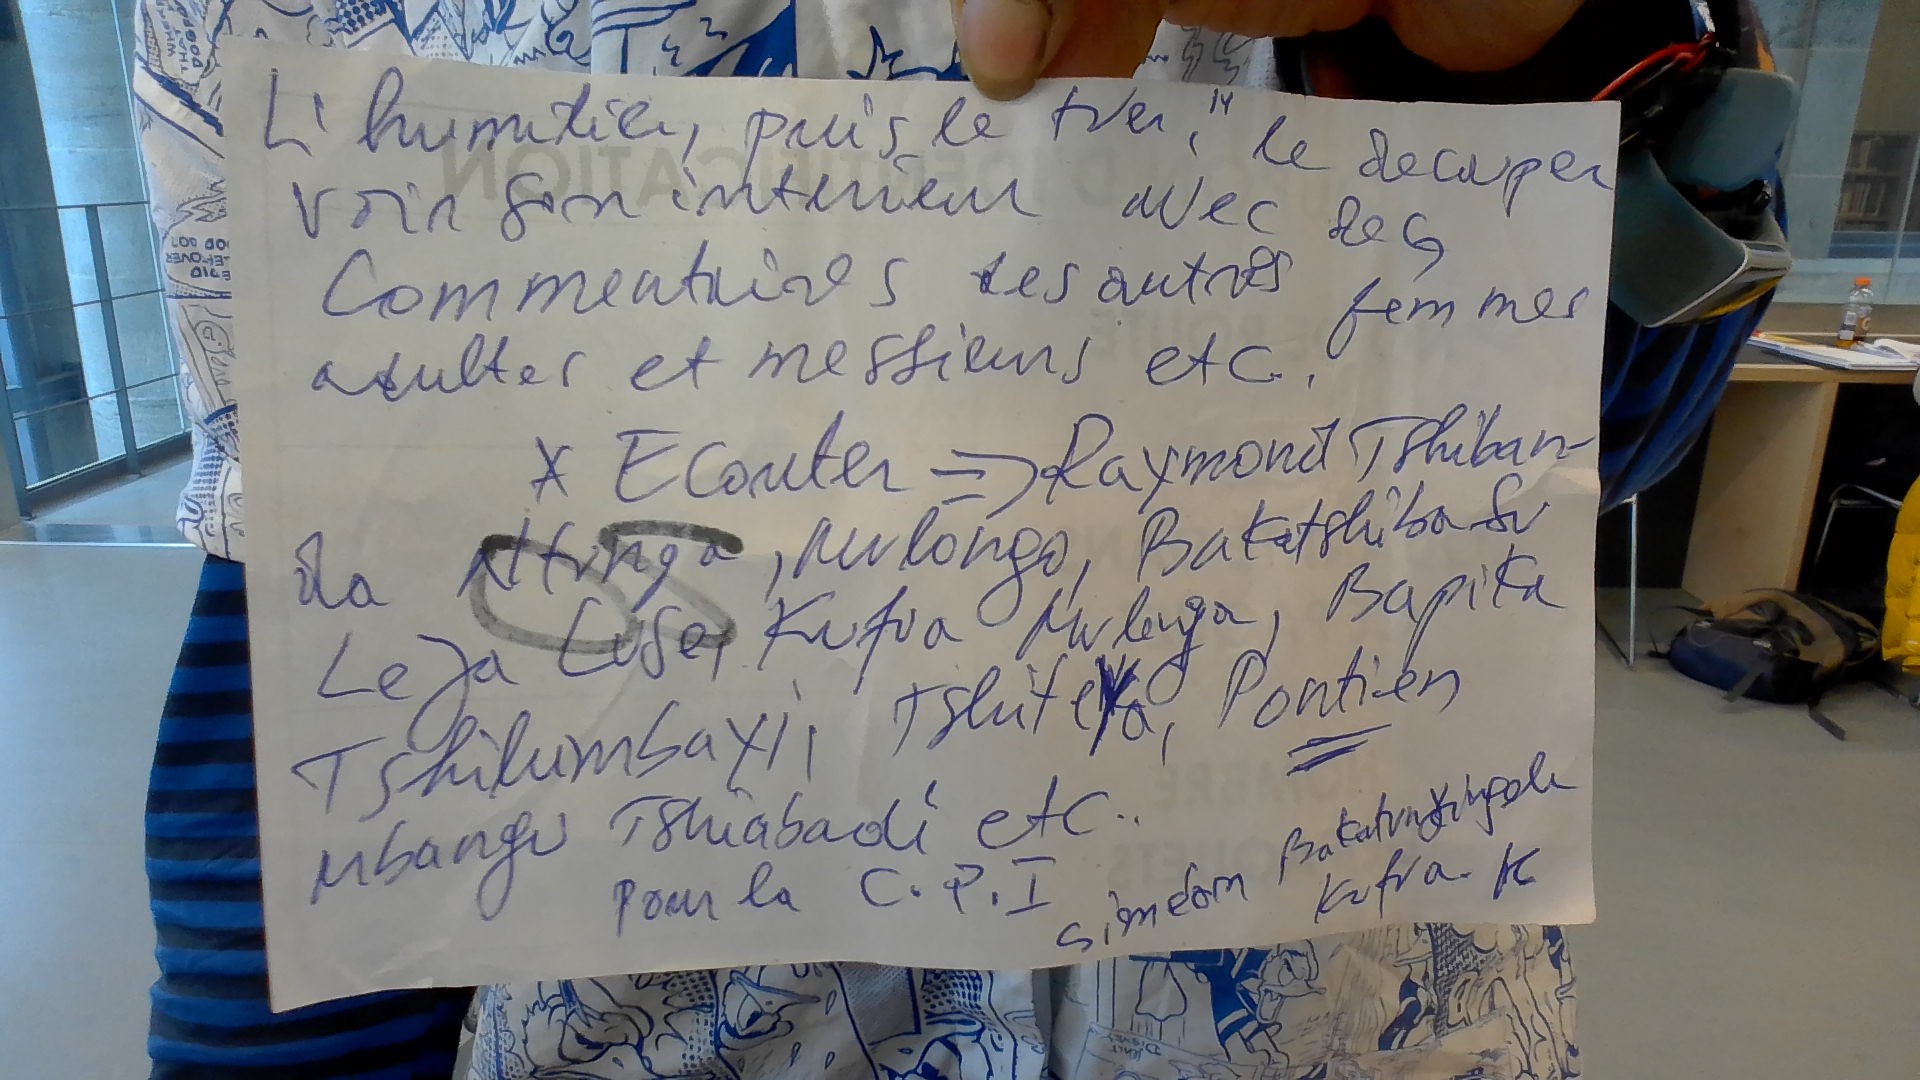 L'humilier, puis le tuer," le decouper
voir son interieur avec des
Commentaires des autres femmes
adultes et messieurs etc.
* Ecouter => Raymond Tshiban-
da Ntunga, Mulongo, Bakatshiba Su
Leja Luse, Kufua Mulenga, Bapika
Tshilumbayi, Tshiteya, Pontien
Mbangu Tshiabadi etc..
pour la C.P.I
Siméon
Kufua. K